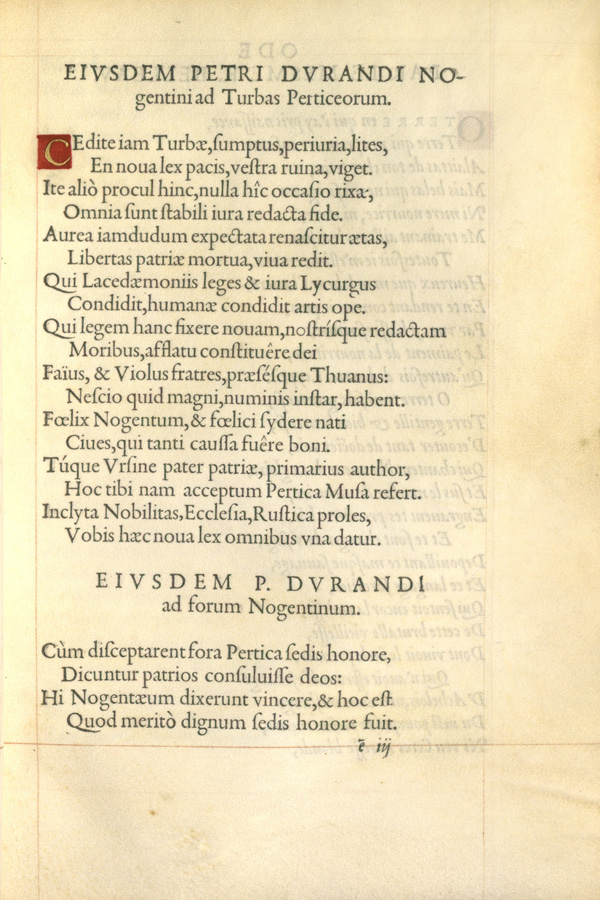 EIVSDEM PETRI DVRANDI NO-
gentini ad Turbas Perticeorum.
CEdite iam Turbæ, ſumptus, periuria, lites,
En noua lex pacis, veſtra ruina, viget.
Ite aliò procul hinc, nulla hîc occaſio rixæ,
Omnia ſunt ſtabili iura redacta fide.
Aurea iamdudum expectata renaſcitur ætas,
Libertas patriæ mortua, viua redit.
Qui Lacedæmoniis leges & iura Lycurgus
Condidit, humanæ condidit artis ope.
Qui legem hanc fixere nouam, noſtríſque redactam
Moribus, afflatu conſtituêre dei
Faïus, & Violus fratres, præſéſque Thuanus:
Neſcio quid magni, numinis inſtar, habent.
Fœlix Nogentum, & fœlici ſydere nati
Ciues, qui tanti cauſſa fuêre boni.
Túque Vrſine pater patriæ, primarius author,
Hoc tibi nam acceptum Pertica Muſa refert.
Inclyta Nobilitas, Eccleſia, Ruſtica proles,
Vobis hæc noua lex omnibus vna datur.
EIVSDEM P. DVRANDI
ad forum Nogentinum.
Cùm diſceptarent fora Pertica ſedis honore,
Dicuntur patrios conſuluiſſe deos:
Hi Nogentæum dixerunt vincere, & hoc eſt
Quod meritò dignum ſedis honore fuit.
ẽ iij